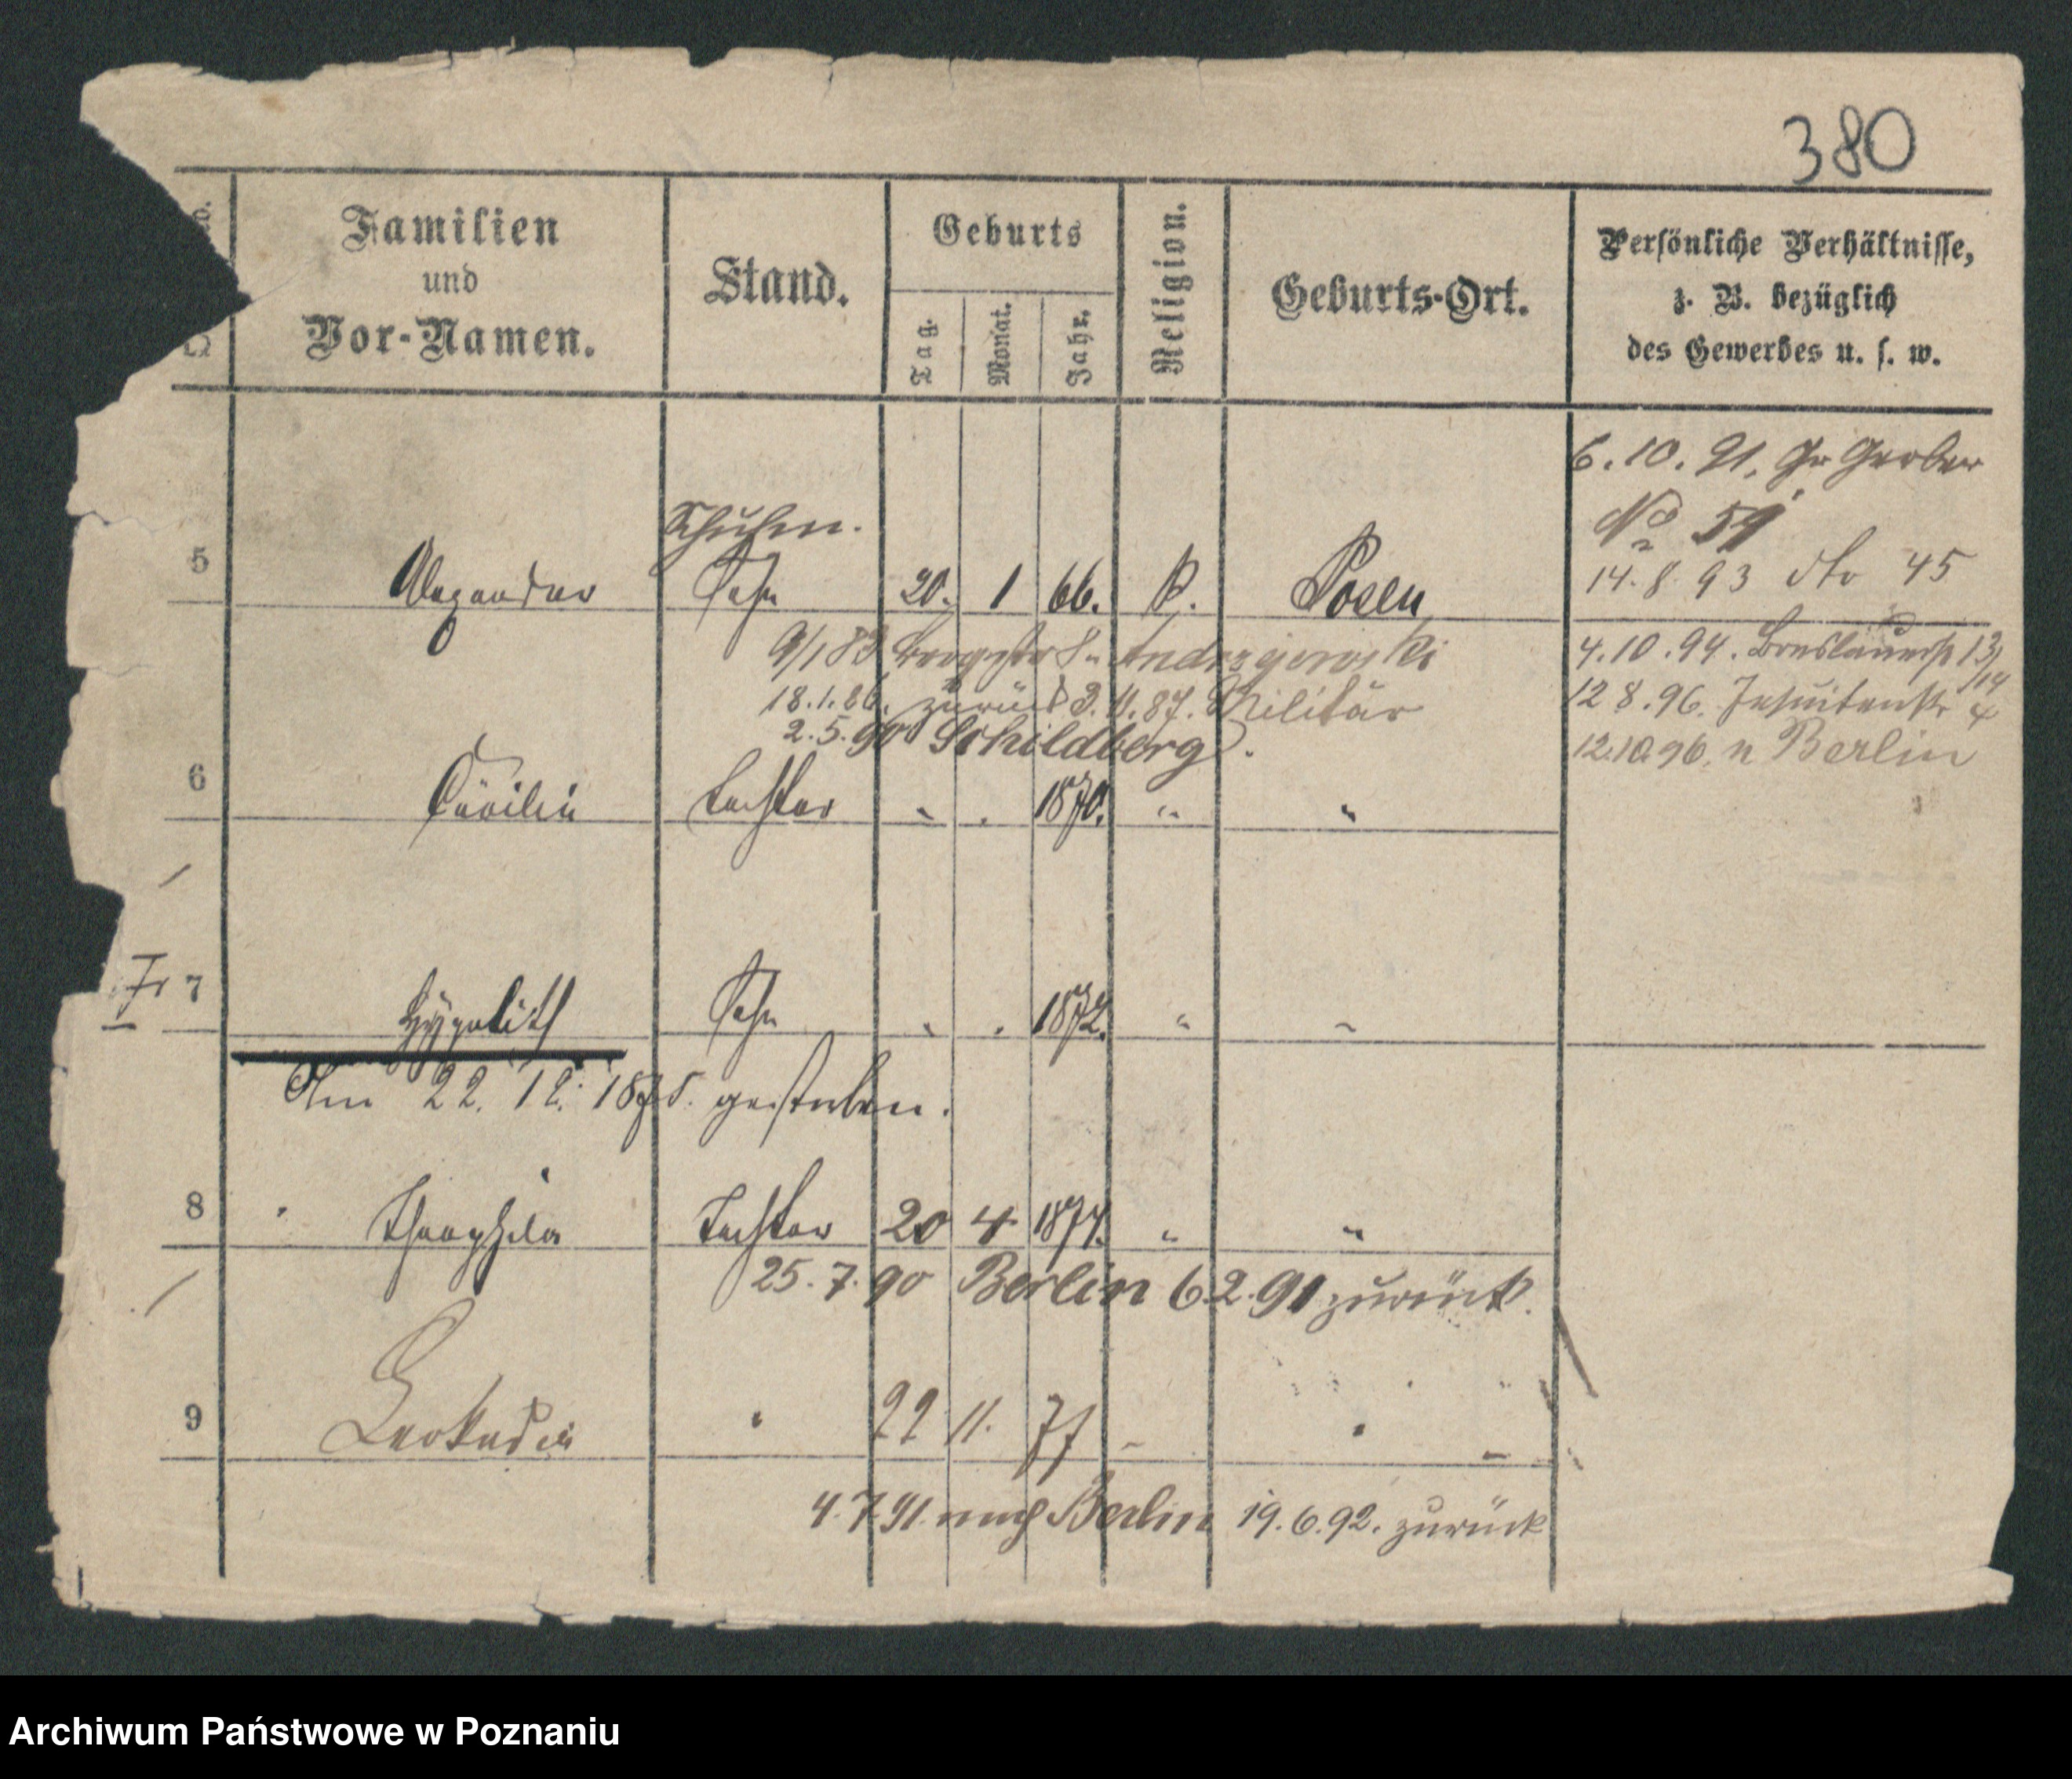 380
Familien
und
Vor-Namen.
Stand.
Geburts
Tag.
Monat.
Jahr.
Religion.
Geburts-Ort.
Persönliche Verhältnisse,
z. B. bezüglich
des Gewerbes u. s. w.
6.10.91. Gr Gerber
No 51
14.8.93 dto 45
Schuhm.
5 Alexander Sohn 20. 1 66. k. Posen
9/1 83 Andrzejewski
18.1.86. zurück 3.11.87. Militär
2.5.90 Schildberg.
4.10.94. Breslauerstr 13/14
12 8.96. Jesuitenstr 4
12.10.96. n Berlin
6 Cäcilia Tochter " " 1870. " "
Fr 7 Hypolith Sohn " " 1872. " "
Am 22. 12. 1875. gestorben.
8 Theophila Tochter 20 4 1874. " "
25.7.90 Berlin 6.2.91 zurück.
9 Leokadia " 22 11. 77 " "
4.7.91. nach Berlin 19.6.92. zurück
Archiwum Państwowe w Poznaniu